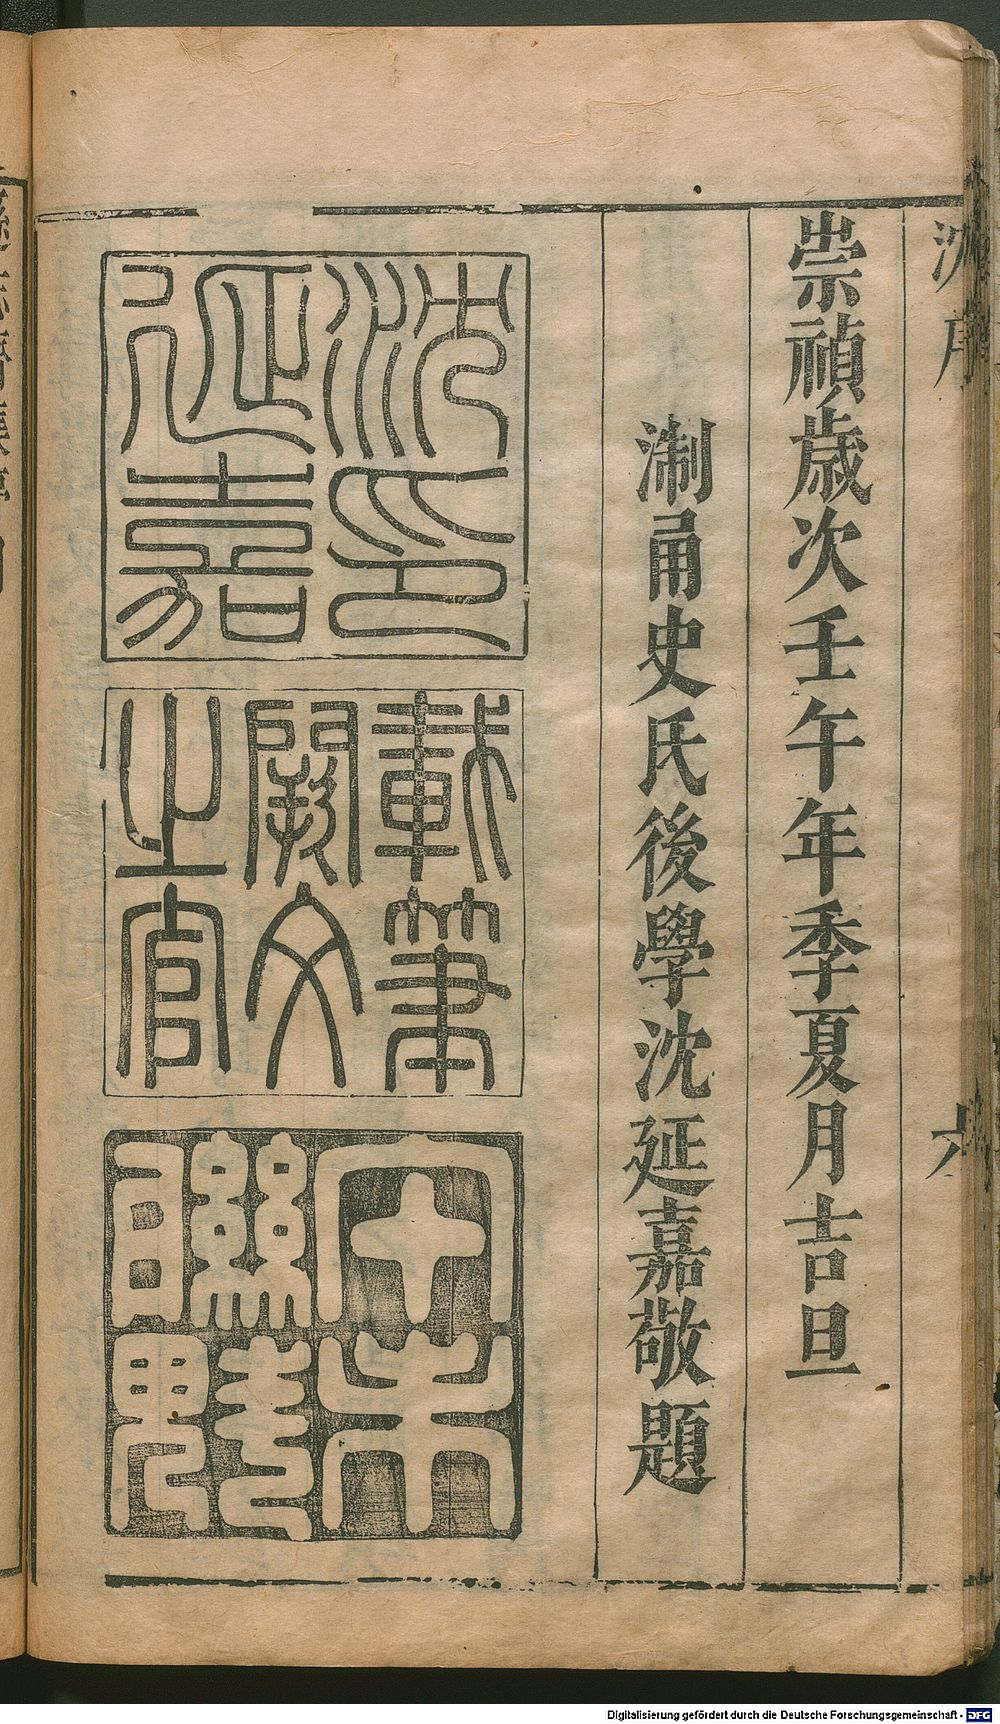 沈序 六
崇禎歳次壬午年季夏月吉旦
淛甬史氏後學沈延嘉敬題
沈印
延嘉
載筆
闕文
之官
Digitalisierung gefördert durch die Deutsche Forschungsgemeinschaft - DFG